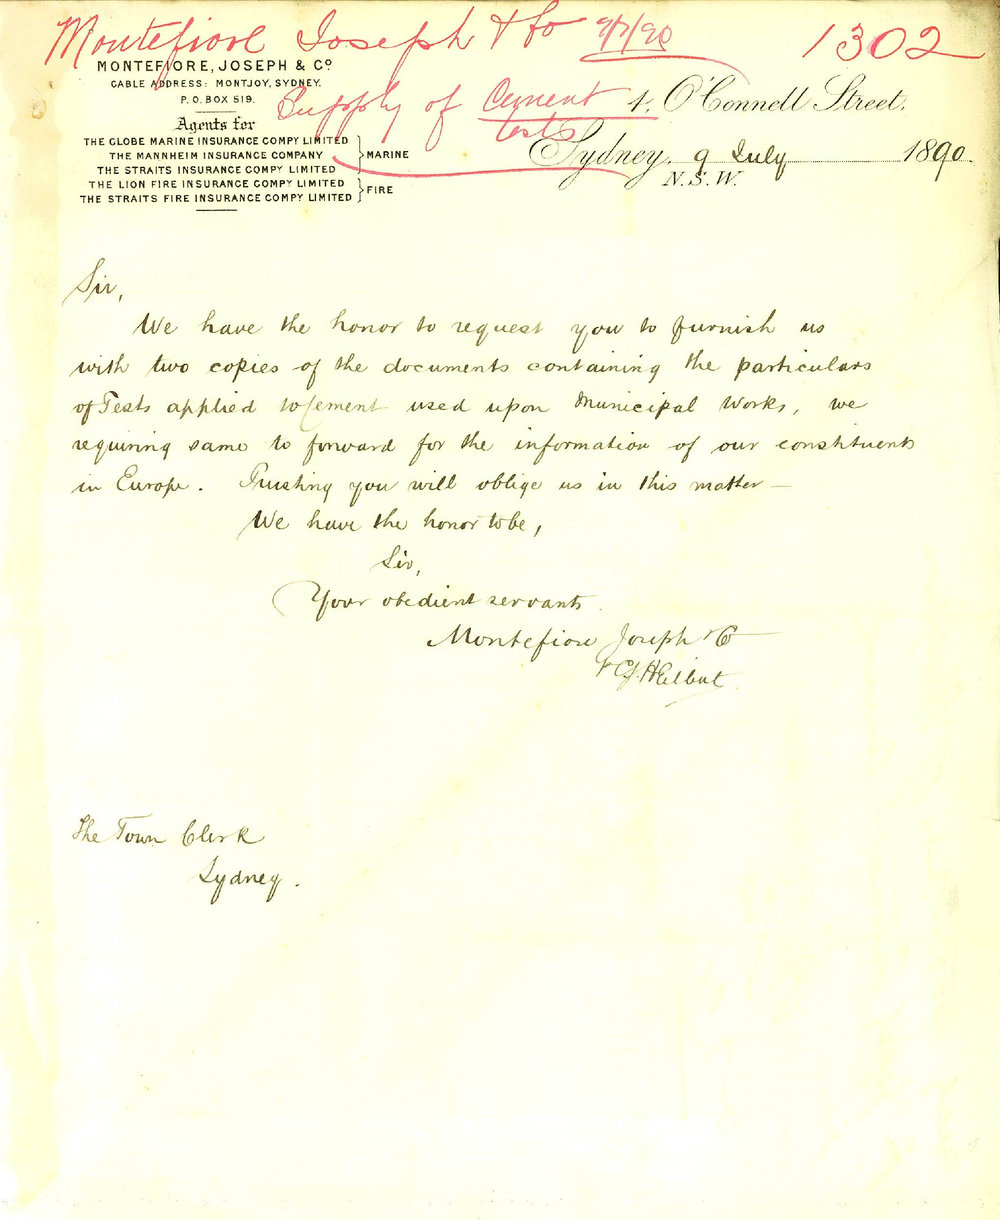 Montefiore Joseph & Co 9/7/90 1302
MONTEFIORE, JOSEPH & Co
CABLE ADDRESS: MONTJOY, SYDNEY.
P. O. BOX 519.
Supply of Cement
tests
4, O'Connell Street.
Agents for
THE GLOBE MARINE INSURANCE COMPY LIMITED
THE MANNHEIM INSURANCE COMPANY
THE STRAITS INSURANCE COMPY LIMITED
MARINE
THE LION FIRE INSURANCE COMPY LIMITED
THE STRAITS FIRE INSURANCE COMPY LIMITED
FIRE
Sydney, 9 July 1890.
N.S.W.
Sir,
We have the honor to request you to furnish us
with two copies of the documents containing the particulars
of Tests applied to Cement used upon Municipal Works, we
requiring same to forward for the information of our constituents
in Europe. Trusting you will oblige us in this matter —
We have the honor to be,
Sir,
Your obedient servants.
Montefiore Joseph & Co
The Town Clerk
Sydney.